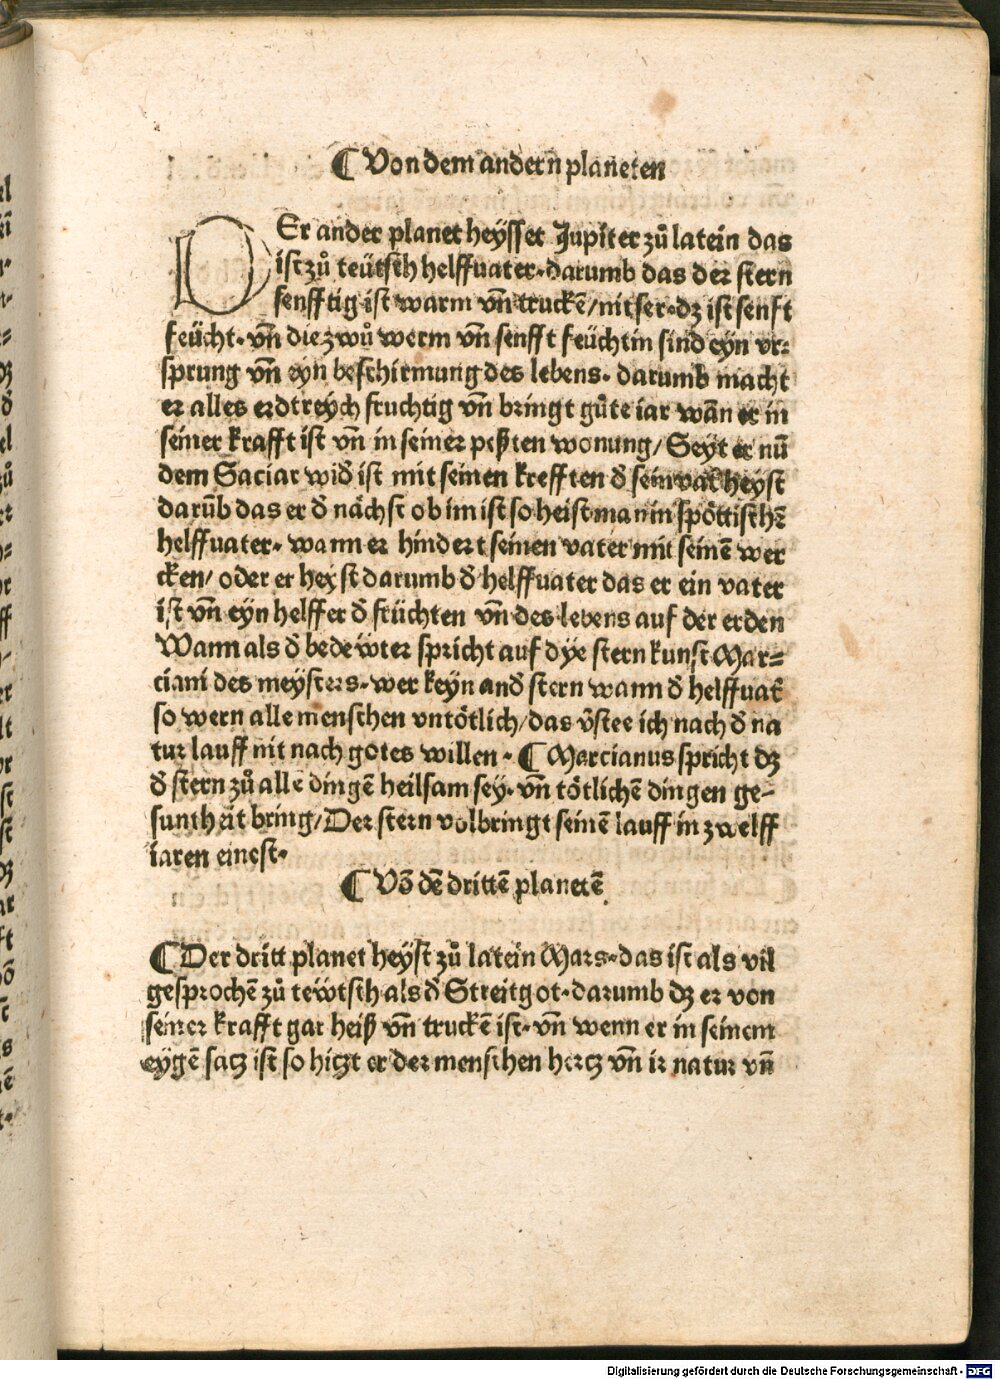 ¶ Von dem andern planeten
DEr ander planet heyſſet Jupiter zů latein das
iſt zů teütſch helffuater· darumb das der ſtern
ſenfftig iſt warm vn̄ truckē/ nit ſer· dz iſt ſenft
feücht· vn̄ die zwů werm vn̄ ſenfft feüchtin ſind eyn vr⸗
ſprung vn̄ eyn beſchirmung des lebens· darumb macht
er alles erdtreych fruchtig vn̄ bringt gůte iar wān er in
ſeiner krafft iſt vn̄ in ſeiner peßten wonung/ Seyt er nū
dem Saciar wid iſt mit ſeinen krefften đ ſein vat̄ heyſt
darūb das er đ nächſt ob im iſt ſo heiſt man in ſpöttiſchē
helffuater· wann er hindert ſeinen vater mit ſeinē wer
cken/ oder er heyſt darumb đ helffuater das er ein vater
iſt vn̄ eyn helffer đ früchten vn̄ des lebens auf der erden
Wann als đ bedewter ſpricht auf dye ſternkunſt Mar⸗
ciani des meyſters· wer keyn and ſtern wann đ helffuat̄
ſo wern alle menſchen vntötlich/ das v̄ſtee ich nach đ na
tur lauff nit nach gotes willen· ¶ Marcianus ſpricht dz
đ ſtern zů alle dingē heilſam ſey· vn̄ tötlichē dingen ge⸗
ſuntheit bring/ Der ſtern volbringt ſeinē lauff in zwelff
iaren eineſt·
¶ Vō dē drittē planetē
¶ Der dritt planet heyſt zů latein Mars· das iſt als vil
geſprochē zů tewtſch als đ Streitgot· darumb dz er von
ſeiner krafft gar heiß vn̄ truckē iſt· vn̄ wenn er in ſeinem
eygē ſatz iſt ſo hitzt er der menſchen hertz vn̄ ir natur vn̄
Digitalisierung gefördert durch die Deutsche Forschungsgemeinschaft - DFG